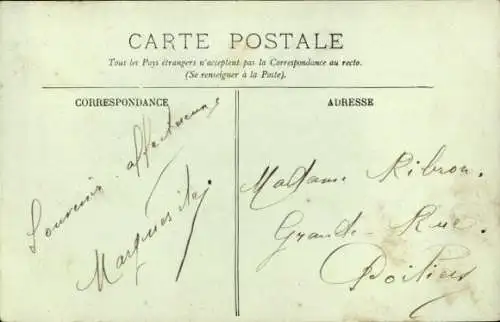 CARTE POSTALE
Tous les Pays étrangers n'acceptent pas la Correspondance au recto.
(Se renseigner à la Poste).
CORRESPONDANCE
Souvenir affectueux
ADRESSE
Madame Ribron.
Grande-Rue.
Poitiers